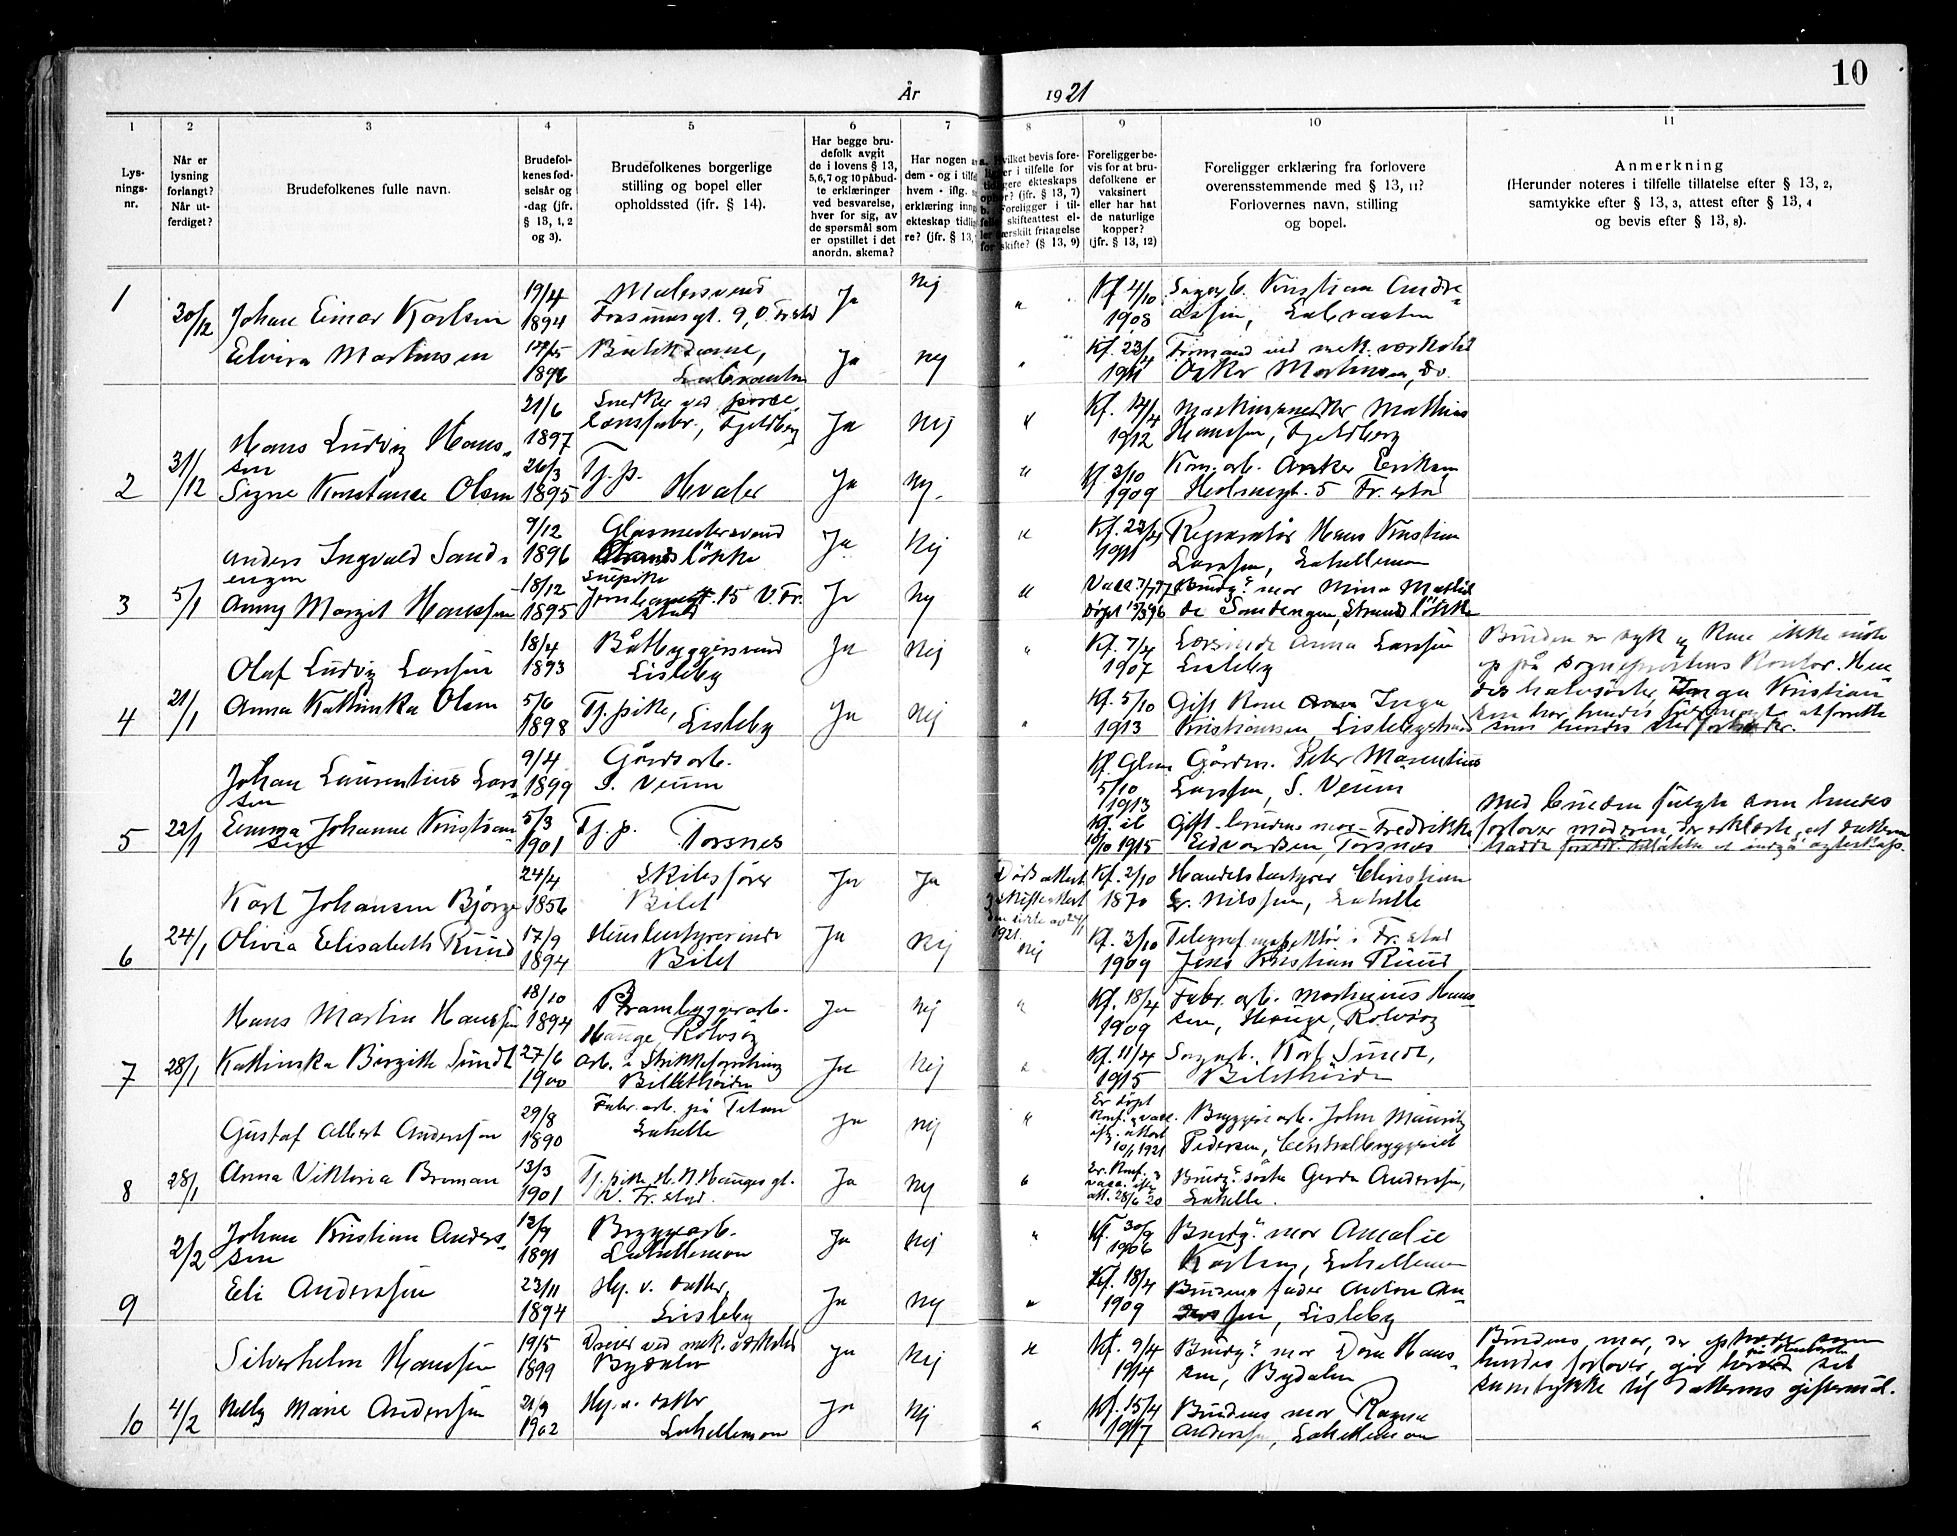 10
År 1921
1 2 3 4 5 6 7 8 9 10 11
Lys-
nings-
nr.
Når er
lysning
forlangt?
Når ut-
ferdiget?
Brudefolkenes fulle navn.
Brudefol-
kenes fød-
selsår og
-dag (jfr.
§ 13, 1, 2
og 3).
Brudefolkenes borgerlige
stilling og bopel eller
opholdssted (jfr. § 14).
Har begge bru-
defolk avgit
de i lovens § 13,
5, 6, 7 og 10 påbud-
te erklæringer
ved besvarelse,
hver for sig, av
de spørsmål som
er opstillet i det
anordn. skema?
Har nogen av
dem - og i tilfelle
hvem - iflg.
erklæring inng
ekteskap tidlig
re? (jfr. § 13,
Hvilket bevis fore-
ligger i tilfelle for
tidligere ekteskaps
ophør? (jfr. § 13, 7)
b. Foreligger i til-
felle skifteattest el-
ler særskilt fritagelse
for skifte? (§ 13, 9)
Foreligger be-
vis for at bru-
defolkene er
vaksinert
eller har hat
de naturlige
kopper?
(jfr. § 13, 12)
Foreligger erklæring fra forlovere
overensstemmende med § 13, 11?
Forlovernes navn, stilling
og bopel.
Anmerkning
(Herunder noteres i tilfelle tillatelse efter § 13, 2,
samtykke efter § 13, 3, attest efter § 13, 4
og bevis efter § 13, 8).
1 30/12 Johan Einar Karlsen 19/4 1894 Malersvend Ja Nej " Kf. 4/10 1908 Sagarb. Kristian Andre-
assen,
Elvira Martinsen Butikdame, Ja Nej " Kf. 23/4 1911 Formand ved mek. værksted
Oskar Martinsen, do.
2 31/12 Hans Ludvig Hans-
sen 21/6 1897 Snedker ved
Fjeldberg Ja Nej " Kf. 14/4 1912 Maskinsnedker Mathias
Hanssen, Fjeldberg
Signe Konstanse Olsen 26/3 1895 Tj.p. Hvaler Ja Nej. " Kf. 3/10 1909 Kom. arb. Anker Eriksen
5 Fr.stad
3 5/1 Anders Ingvald Sand-
engen 9/12 1896 Glasmestersvend
løkke Ja Nej " Kf. 23/4 1911 Reparatør Hans Kristian
Larssen, Lahellemoen
Anny Margit Hanssen 18/12 1895 15 V. Fr.
stad Ja Nej " Døpt Brudg.s mor Mina Mathil-
de Sandengen, Strandløkke
4 21/1 Olaf Ludvig Larssen 18/4 1893 Båtbyggersvend
Lisleby Ja Nej " Kf. 7/4 1907 Anna Larssen
Lisleby
Bruden er syk og kan ikke møte
op på sogneprestens kontor. Hen-
des halvsøster, Inga Kristian-
sen har hendes
Anna Kathinka Olsen 5/6 1898 Tj.pike, Lisleby Ja Nej " Kf. 5/10 1913 Gift Kone Inga
Kristiansen,
5 22/1 Johan Laurentius Lars-
sen 9/4 1899 Gårdsarb.
S. Veum Kf. 5/10 1913 Gårdbr. Peter
Larssen, S. Veum
Emma Johanne Kristian-
sen 5/3 1901 Tj.p. Torsnes Kf. 10/10 1915 Gift. brudens mor Fredrikke
Edvardsen, Torsnes
Med bruden fulgte som hendes
forlover moderen, der erklærte, at datteren
hadde
6 24/1 Karl Johansen Bjørge 24/4 1856 Skibsfører
Bilet Ja Ja Dødsattest
1921 Kf. 2/10 1870 Handelsbestyrer Christian
Nilssen, Lahelle
Olivia Elisabeth Ruud 17/9 1894 Husbestyrerinde
Bilet Ja Nej Nej Kf. 3/10 1909 Telegraf i Fr.stad
Jens Kristian Ruud
7 28/1 Hans Martin Hanssen 18/10 1894 Hauge, Rolvsøy Ja Nej " Kf. 18/4 1909 Fabr. arb. Martinius Hans-
sen, Hauge, Rolvsøy
Kathinka Birgitte Sundt 27/6 1900 arb. i Strikkeforretning
Ja Nej " Kf. 11/4 1915 Sagarb. Karl Sundt,
8 28/1 Gustaf Albert Anderssen 29/8 1890 Fabr. arb. på Titan
Lahelle Ja Nej " Er døpt
10/1 1921 Bryggeriarb. John Mauritz
Pedersen, Centralbryggeriet
Anna Viktoria Broman 13/3 1901 Tj.pike, H. N. Hauges gt.
V. Fr.stad. Ja Nej " 28/6 20 Brudg.s søster Gerda Anderssen,
Lahelle.
9 2/2 Johan Kristian Anders-
sen 13/9 1891 Bryggearb.
Lahellemoen Ja Nej " Kf. 30/9 1906 Brudg.s mor Amalie
Karlsen, Lahellemoen
Eli Anderssen 23/11 1894 Hj. v. datter,
Lisleby Ja Nej " Kf. 18/4 1909 Brudens fader Anton An-
derssen, Lisleby
10 4/2 Silverhelm Hanssen 19/5 1899 Dreier ved mek. værksted
Bydalen Ja Nej " Kf. 9/4 1914 Brudg.s mor Dora Hans-
sen, Bydalen
Brudens mor, der optræder som
hendes forlover, gir herved sit
samtykke til datterens giftermål.
Nelly Marie Anderssen 21/9 1902 Hj.v. datter
Lahellemoen Ja Nej " Kf. 15/4 1917 Brudens mor Ragna
Anderssen, Lahellemoen